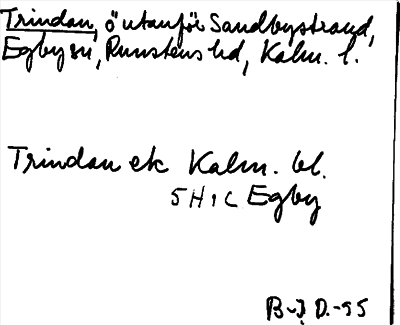 Trindan, ö utanför Sandbystrand,
Egby sn, Runstens hd, Kalm. l.
Trindan ek Kalm. bl.
5H1C Egby
D.-55